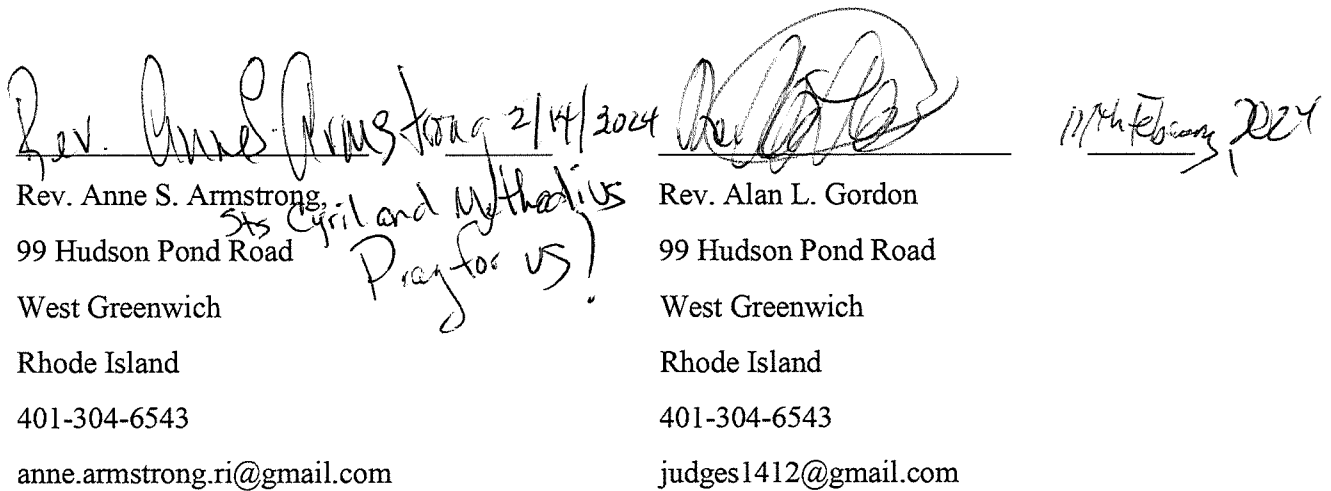 Rev. Anne S. Armstrong 2/14/2024
February, 2024
Rev. Anne S. Armstrong,
Sts Cyril and Methodius
Pray for us!
99 Hudson Pond Road
West Greenwich
Rhode Island
401-304-6543
anne.armstrong.ri@gmail.com
Rev. Alan L. Gordon
99 Hudson Pond Road
West Greenwich
Rhode Island
401-304-6543
judges1412@gmail.com